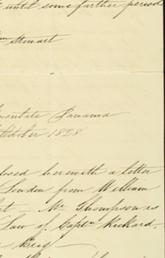 until some farther period
Stewart
Panama
October 1828
herewith a letter
London from William
Mr Thompson is
Law of Captn Rickard,
Brig